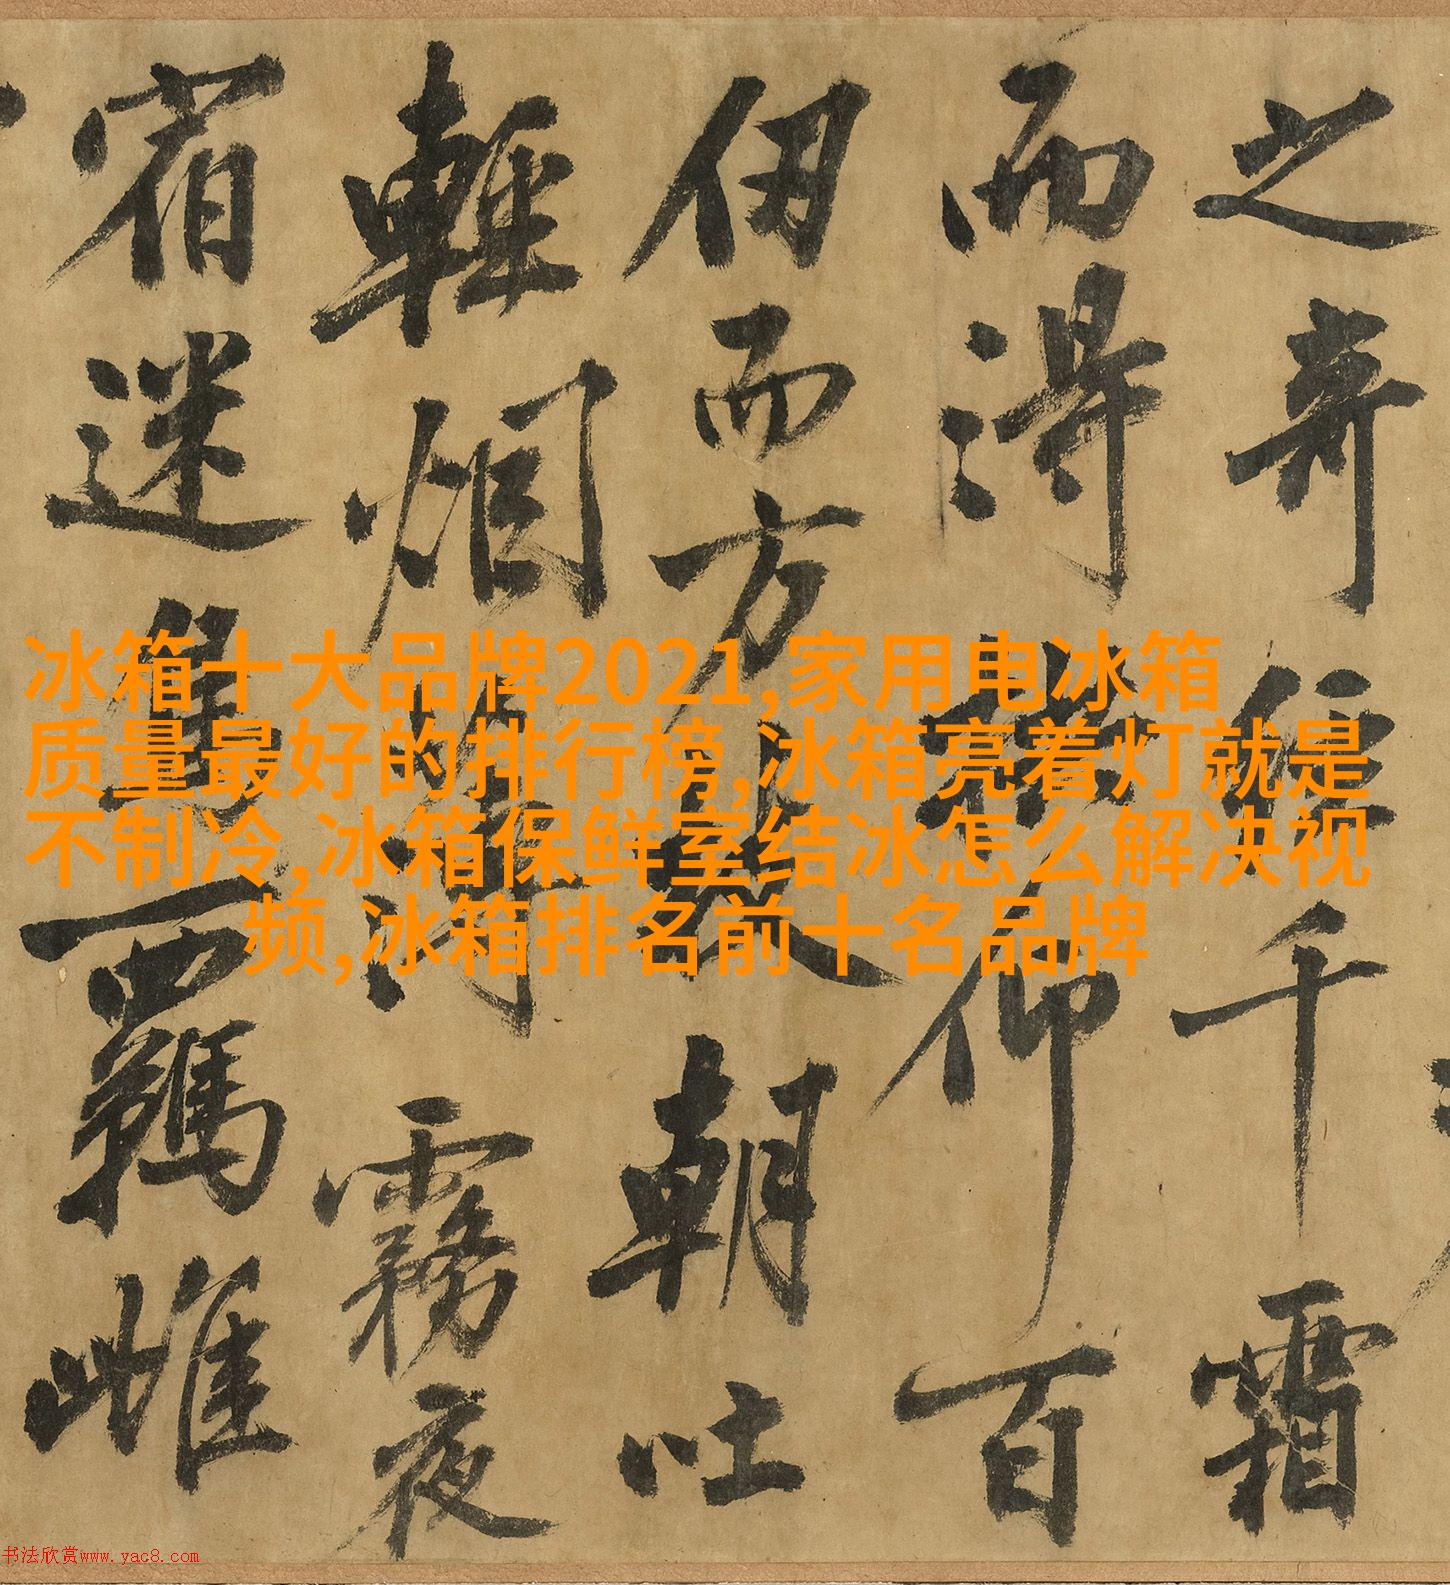 冰箱十大品牌2021,家用电冰箱
质量最好的排行榜,冰箱亮着灯就是
不制冷,冰箱保鲜室结冰怎么解决视
频,冰箱排名前十名品牌
之奇恠千霜
而淂仰百
仞而方朝吐
輕烟薄霧夜
宿迷鳥羈雌
书法欣赏www.yac8.com